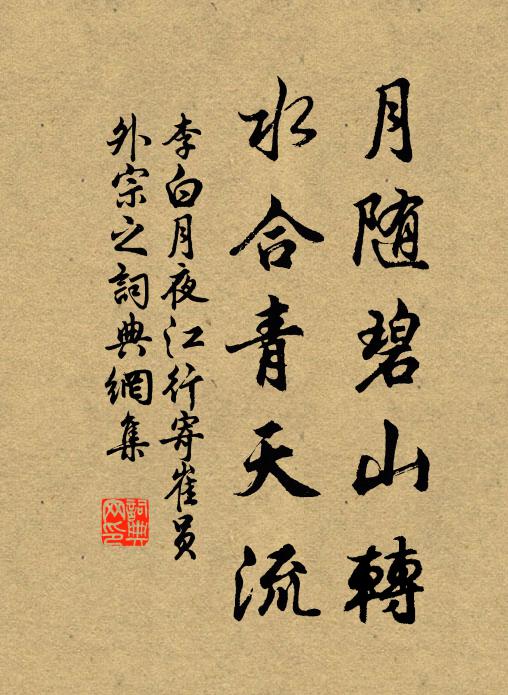 月随碧山轉
水合青天流
李白月夜江行寄崔员
外宗之詞典網集
詞典网印